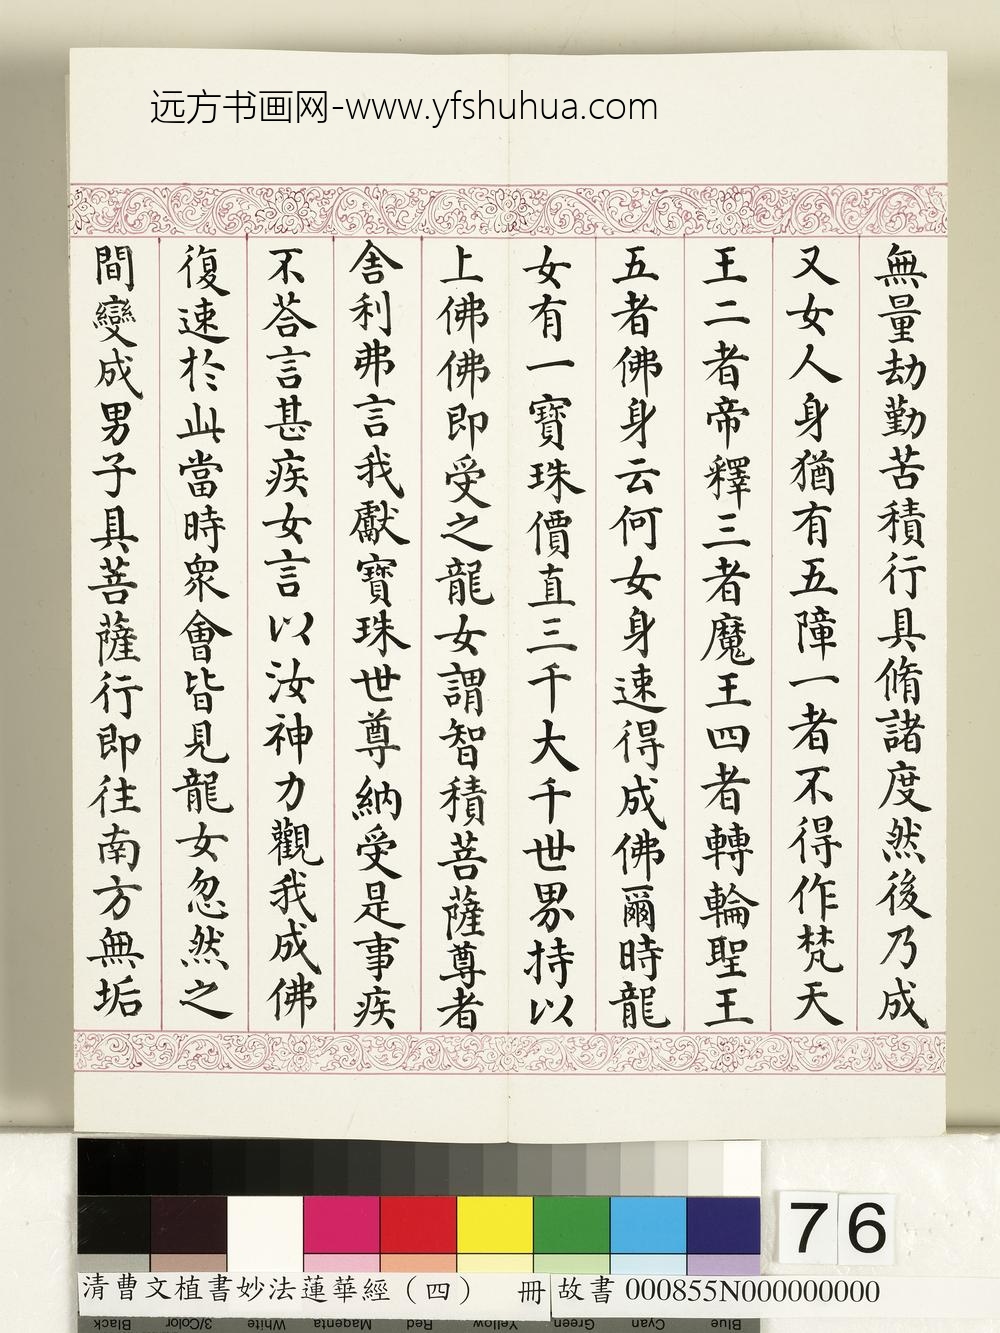 远方书画网-www.yfshuhua.com
無量劫勤苦積行具脩諸度然後乃成
又女人身猶有五障一者不得作梵天
王二者帝釋三者魔王四者轉輪聖王
五者佛身云何女身速得成佛爾時龍
女有一寶珠價直三千大千世界持以
上佛佛即受之龍女謂智積菩薩尊者
舍利弗言我獻寶珠世尊納受是事疾
不荅言甚疾女言以汝神力觀我成佛
復速於此當時衆會皆見龍女忽然之
間變成男子具菩薩行即往南方無垢
76
清曹文植書妙法蓮華經（四） 冊 故書 000855N000000000
Black 3/Color White Magenta Red Yellow Green Cyan Blue